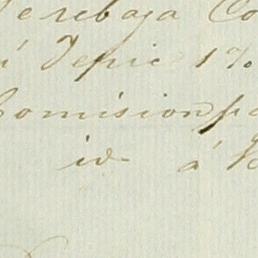 se rebaja Co
á Tepic 1%
Comision pa
id á